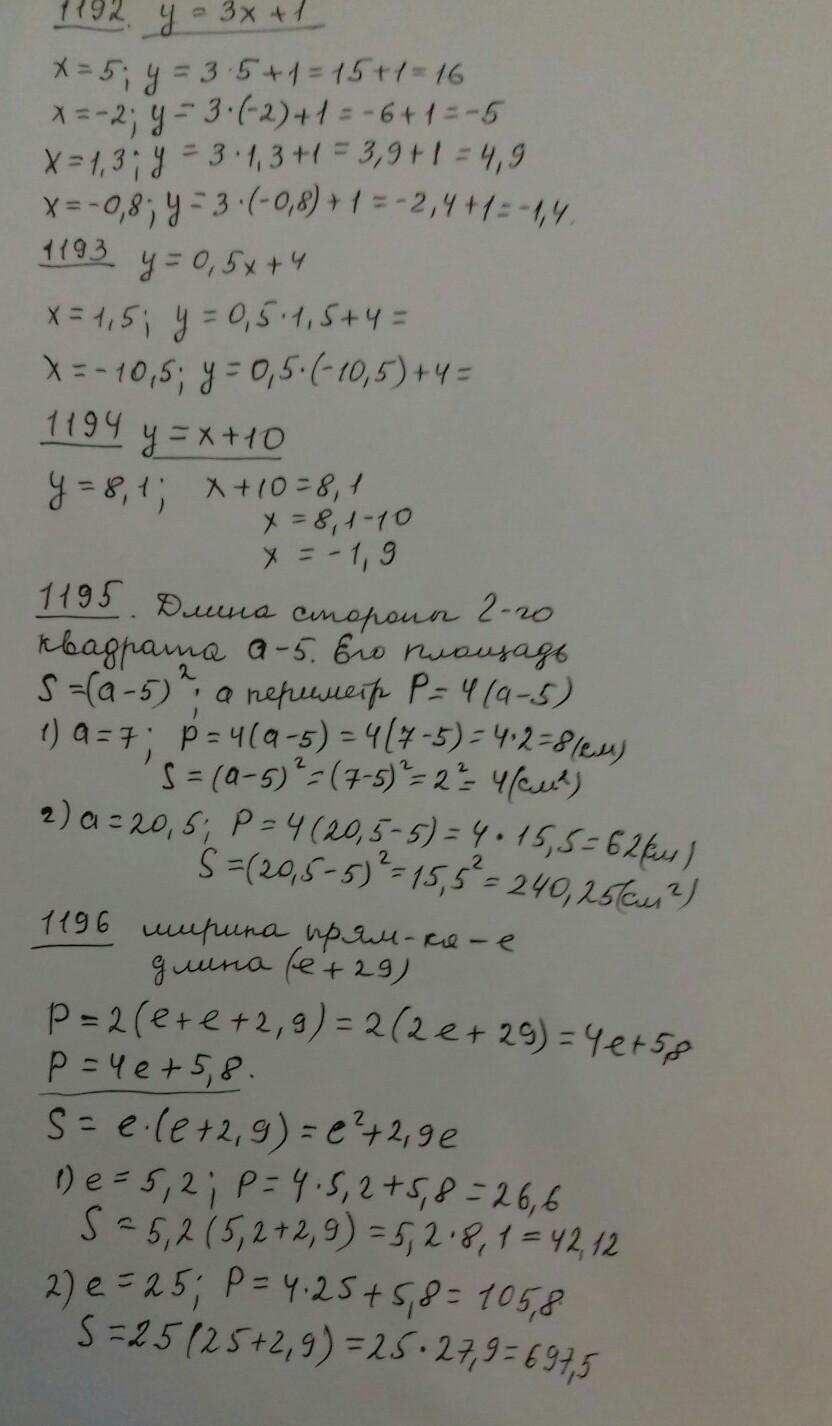 1192. y = 3x + 1
x = 5; y = 3·5+1 = 15+1 = 16
x = -2; y = 3·(-2)+1 = -6+1 = -5
x = 1,3; y = 3·1,3+1 = 3,9+1 = 4,9
x = -0,8; y = 3·(-0,8)+1 = -2,4+1 = -1,4.
1193 y = 0,5x+4
x = 1,5; y = 0,5·1,5+4 =
x = -10,5; y = 0,5·(-10,5)+4 =
1194 y = x+10
y = 8,1; x+10 = 8,1
x = 8,1-10
x = -1,9
1195. Длина стороны 2-го
квадрата a-5. Его площадь
S = (a-5)²; а периметр P = 4(a-5)
1) a = 7; p = 4(a-5) = 4(7-5) = 4·2 = 8(см)
S = (a-5)² = (7-5)² = 2² = 4(см²)
2) a = 20,5; P = 4(20,5-5) = 4·15,5 = 62(см)
S = (20,5-5)² = 15,5² = 240,25(см²)
1196 ширина прям-ка - e
длина (e+29)
P = 2(e+e+2,9) = 2(2e+29) = 4e+5,8
P = 4e+5,8.
S = e·(e+2,9) = e²+2,9e
1) e = 5,2; P = 4·5,2+5,8 = 26,6
S = 5,2(5,2+2,9) = 5,2·8,1 = 42,12
2) e = 25; P = 4·25+5,8 = 105,8
S = 25(25+2,9) = 25·27,9 = 697,5